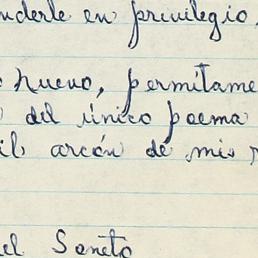 nderle en privilegio,
o nuevo, permítame
del único poema
il arcón de mis
el Soneto